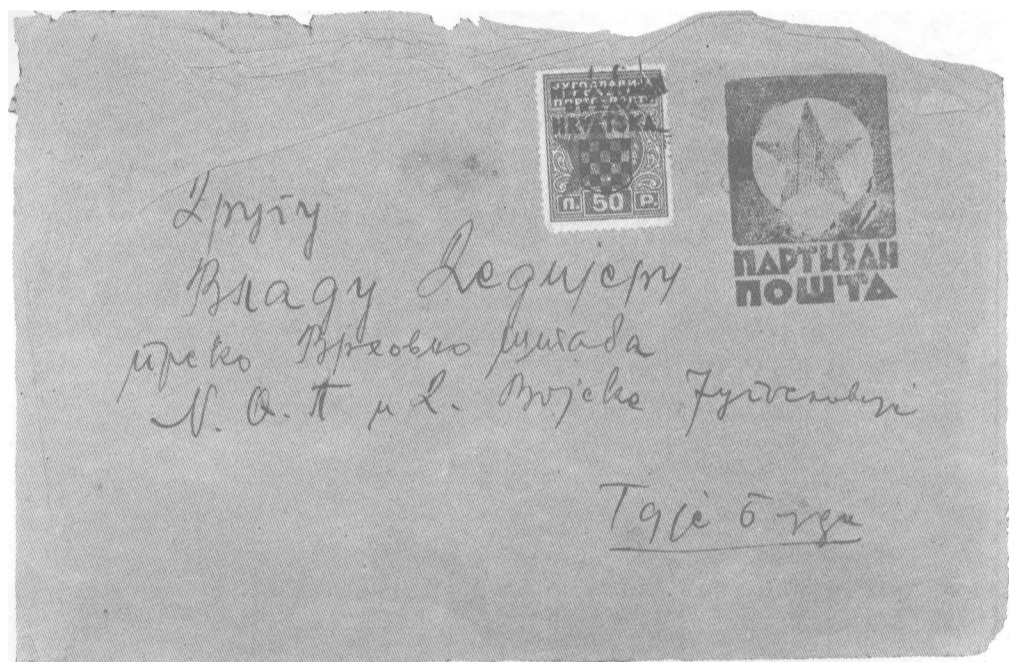 ЈУГОСЛАВИЈА
HRVATSKA
П. 50 Р.
ПАРТИЗАН
ПОШТА
Другу
Владу Дедијеру
преко Врховно Штаба
N. О. П и Д. Војске Југословије
Гдје буде